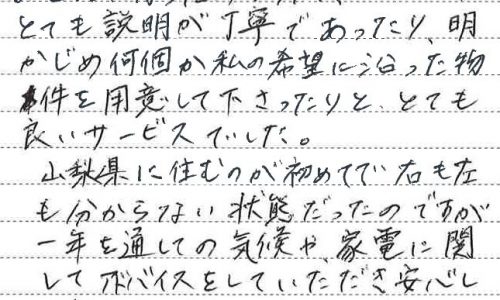 とても説明が丁寧であったり、明
かじめ何個か私の希望に沿った物
件を用意して下さったりと、とても
良いサービスでした。
山梨県に住むのが初めてで右も左
も分からない状態だったのですが
一年を通しての気候や、家電に関
してアドバイスをしていただき安心し